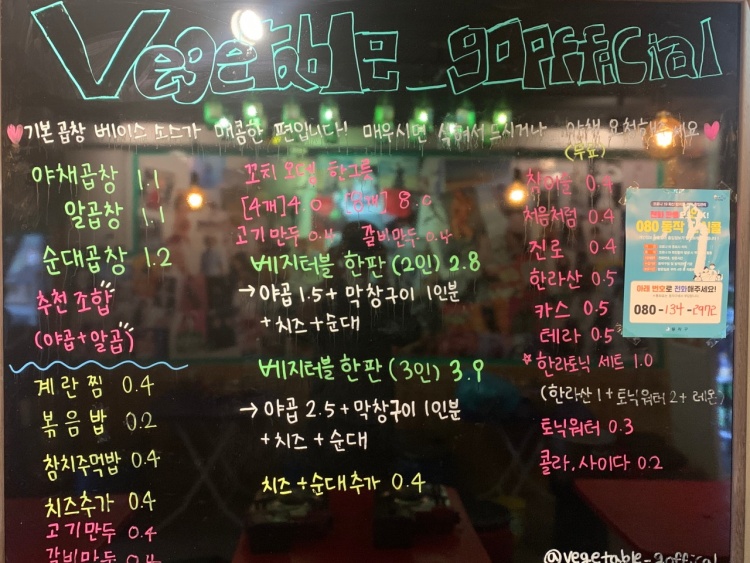 Vegetable_gopfficial
기본 곱창 베이스 소스가 매콤한 편입니다! 매우시면 식혀서 드시거나 야채 요청해주세요
(무료)
야채곱창 1.1
알곱창 1.1
순대곱창 1.2
추천 조합
(야곱+알곱)
계란찜 0.4
볶음밥 0.2
참치주먹밥 0.4
치즈추가 0.4
고기만두 0.4
갈비만두 0.4
꼬치 오뎅 한그릇
[4개] 4.0 8.0
고기만두 0.4 갈비만두 0.4
베지터블 한판 (2인) 2.8
→ 야곱 1.5 + 막창구이 1인분
+ 치즈 + 순대
베지터블 한판 (3인) 3.9
→ 야곱 2.5 + 막창구이 1인분
+ 치즈 + 순대
치즈 + 순대추가 0.4
참이슬 0.4
처음처럼 0.4
진로 0.4
한라산 0.5
카스 0.5
테라 0.5
한라토닉 세트 1.0
(한라산 1 + 토닉워터 2 + 레몬)
토닉워터 0.3
콜라, 사이다 0.2
@vegetable_gofficial
아래 번호로 전화해주세요!
080-134-2972